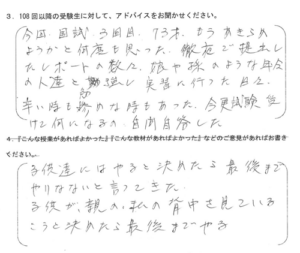 3. 108回以降の受験生に対して、アドバイスをお聞かせください。
今回、国試 3回目、73才、もうあきらめ
ようかと何度も思った。徹底で提出し
たレポートの数々、娘や孫のような年令
の人達と勉強し実習に行った日々、
辛い時も諦めな時もあった。今更試験受
けて何になるの、自問自答した
4. 『こんな授業があればよかった』『こんな教材があればよかった』などのご意見があればお書き
ください。
子供達にはやると決めたら最後まで
やりなさいと言ってきた。
子供が、親の、私の背中を見ている
こうと決めたら最後までやる